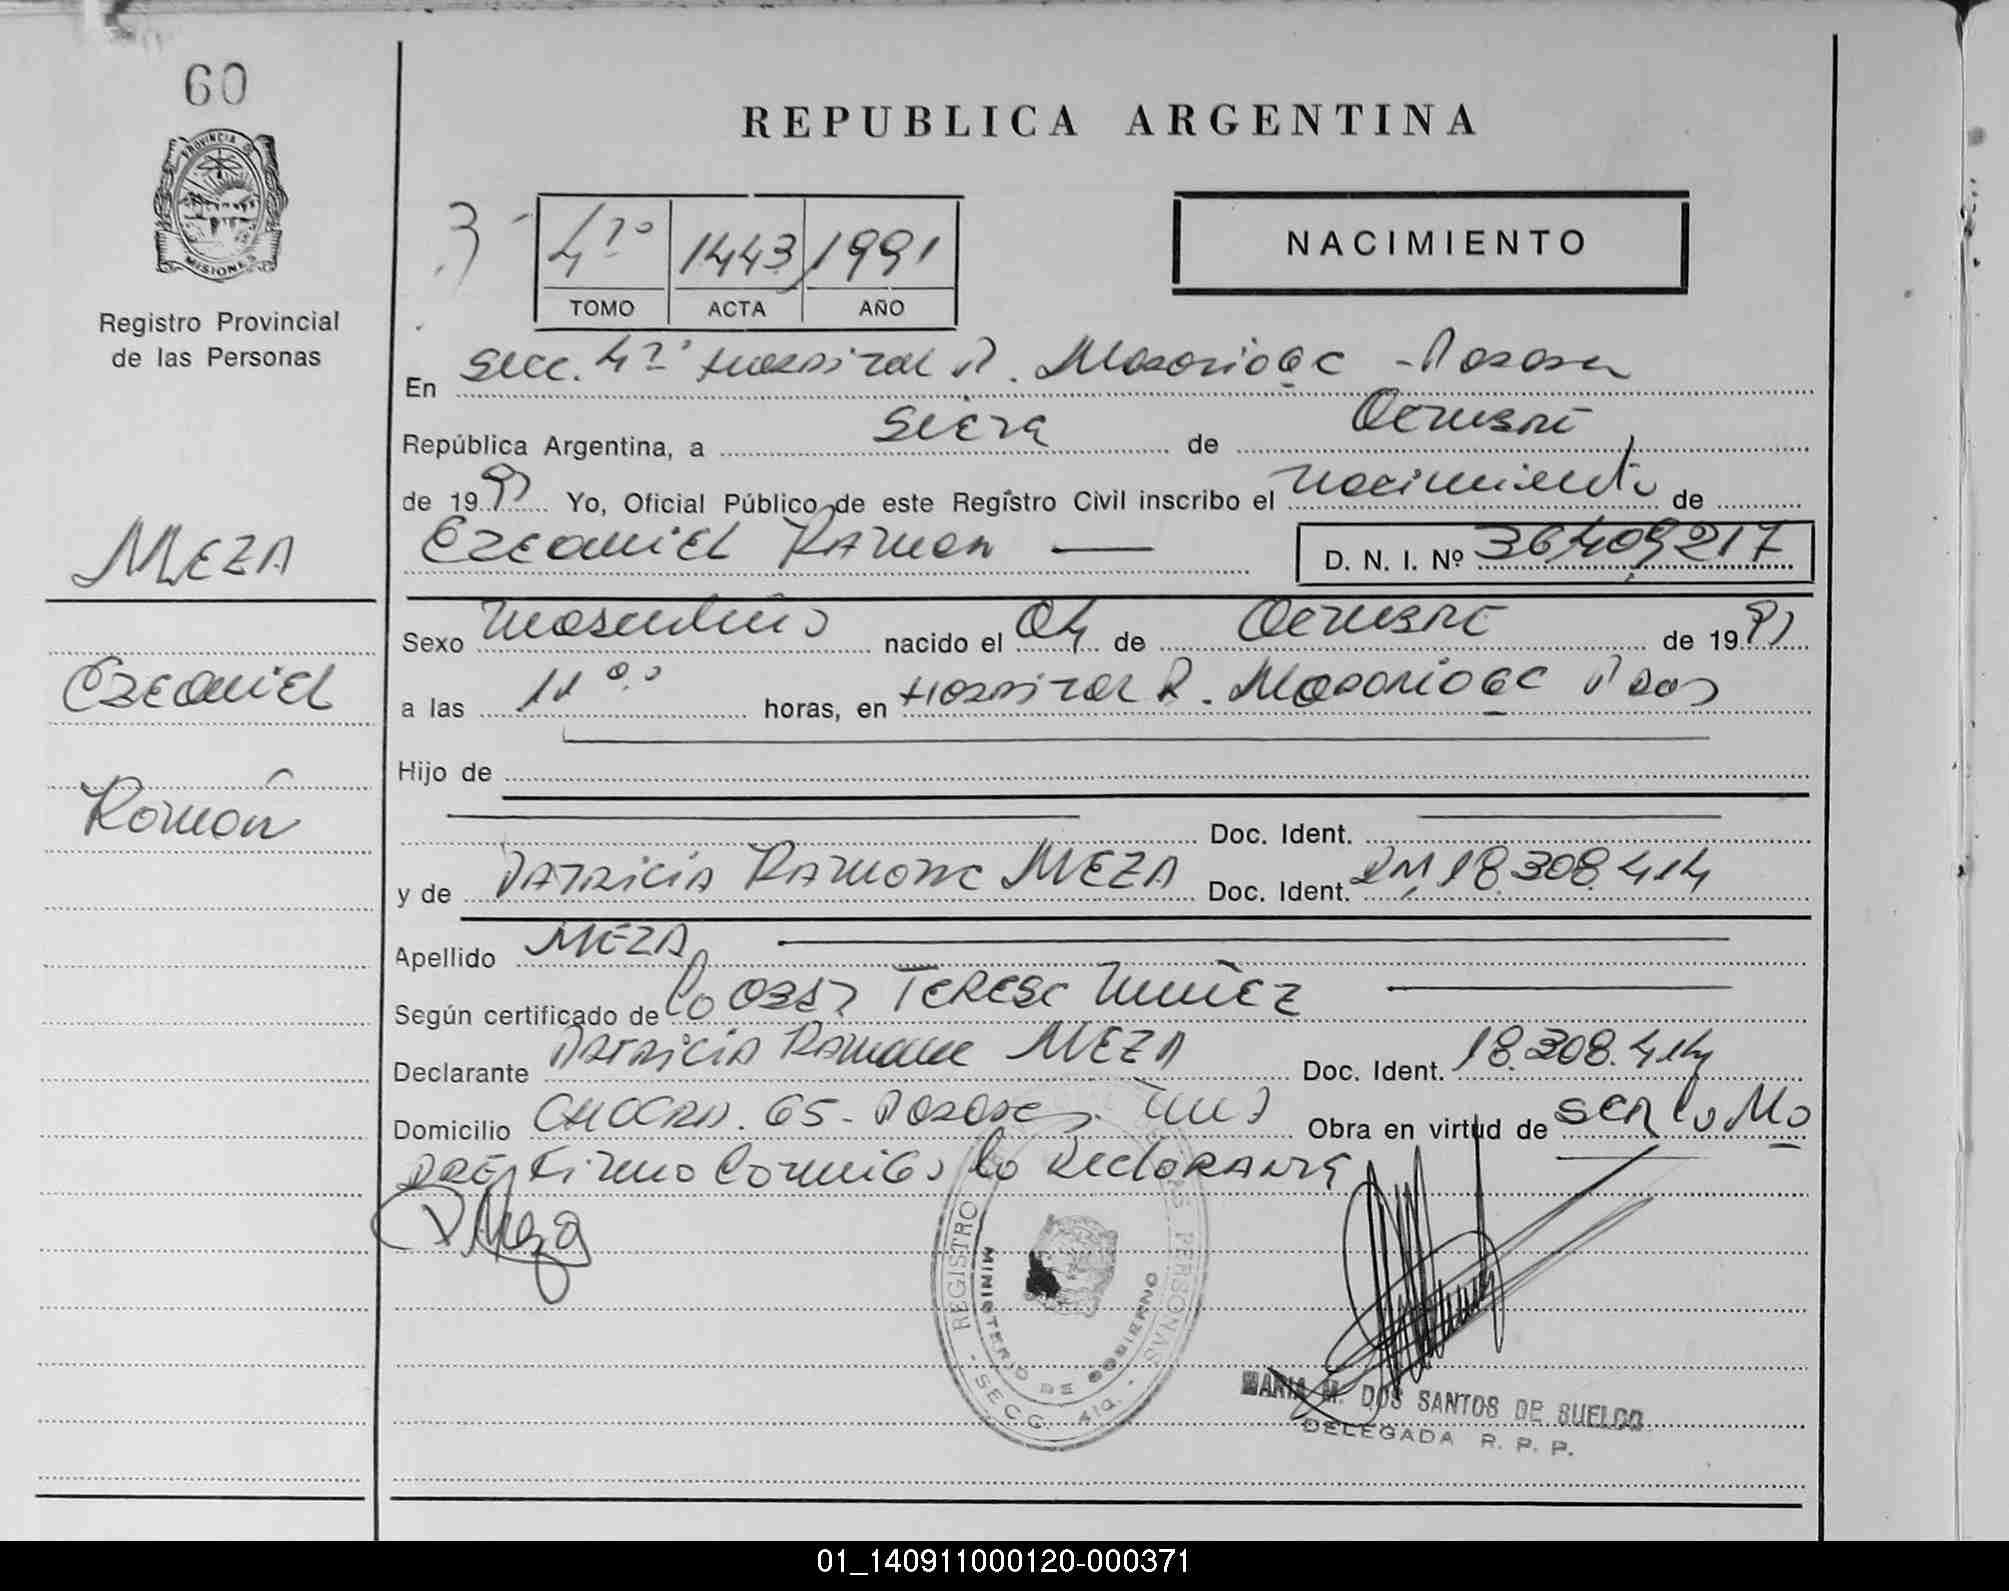 60
PROVINCIA DE
MISIONES
Registro Provincial
de las Personas
MEZA
Ezequiel
Ramón
REPUBLICA ARGENTINA
3
4º 1443 1991
TOMO ACTA AÑO
NACIMIENTO
En Secc. 4º Hospital R. Madariaga - Posadas
República Argentina, a Siete de Octubre
de 1991 Yo, Oficial Público de este Registro Civil inscribo el nacimiento de
Ezequiel Ramon
D. N. I. Nº 36.409.217
Sexo Masculino nacido el 04 de Octubre de 1991
a las 11 horas, en Hospital R. Madariaga Pdas
Hijo de
Doc. Ident.
y de Patricia Ramona MEZA Doc. Ident. 18.308.414
Apellido MEZA
Según certificado de la Obst Teresa Nuñez
Declarante Patricia Ramona MEZA Doc. Ident. 18.308.414
Domicilio CHACRA. 65 - Posadas Obra en virtud de ser la Ma
dre, Firma Conmigo la Declarante
P Meza
REGISTRO PERSONAS
MINISTERIO DE GOBIERNO
- SECC. 4ta. -
MARIA M. DOS SANTOS DE
DELEGADA R. P. P.
01_140911000120-000371